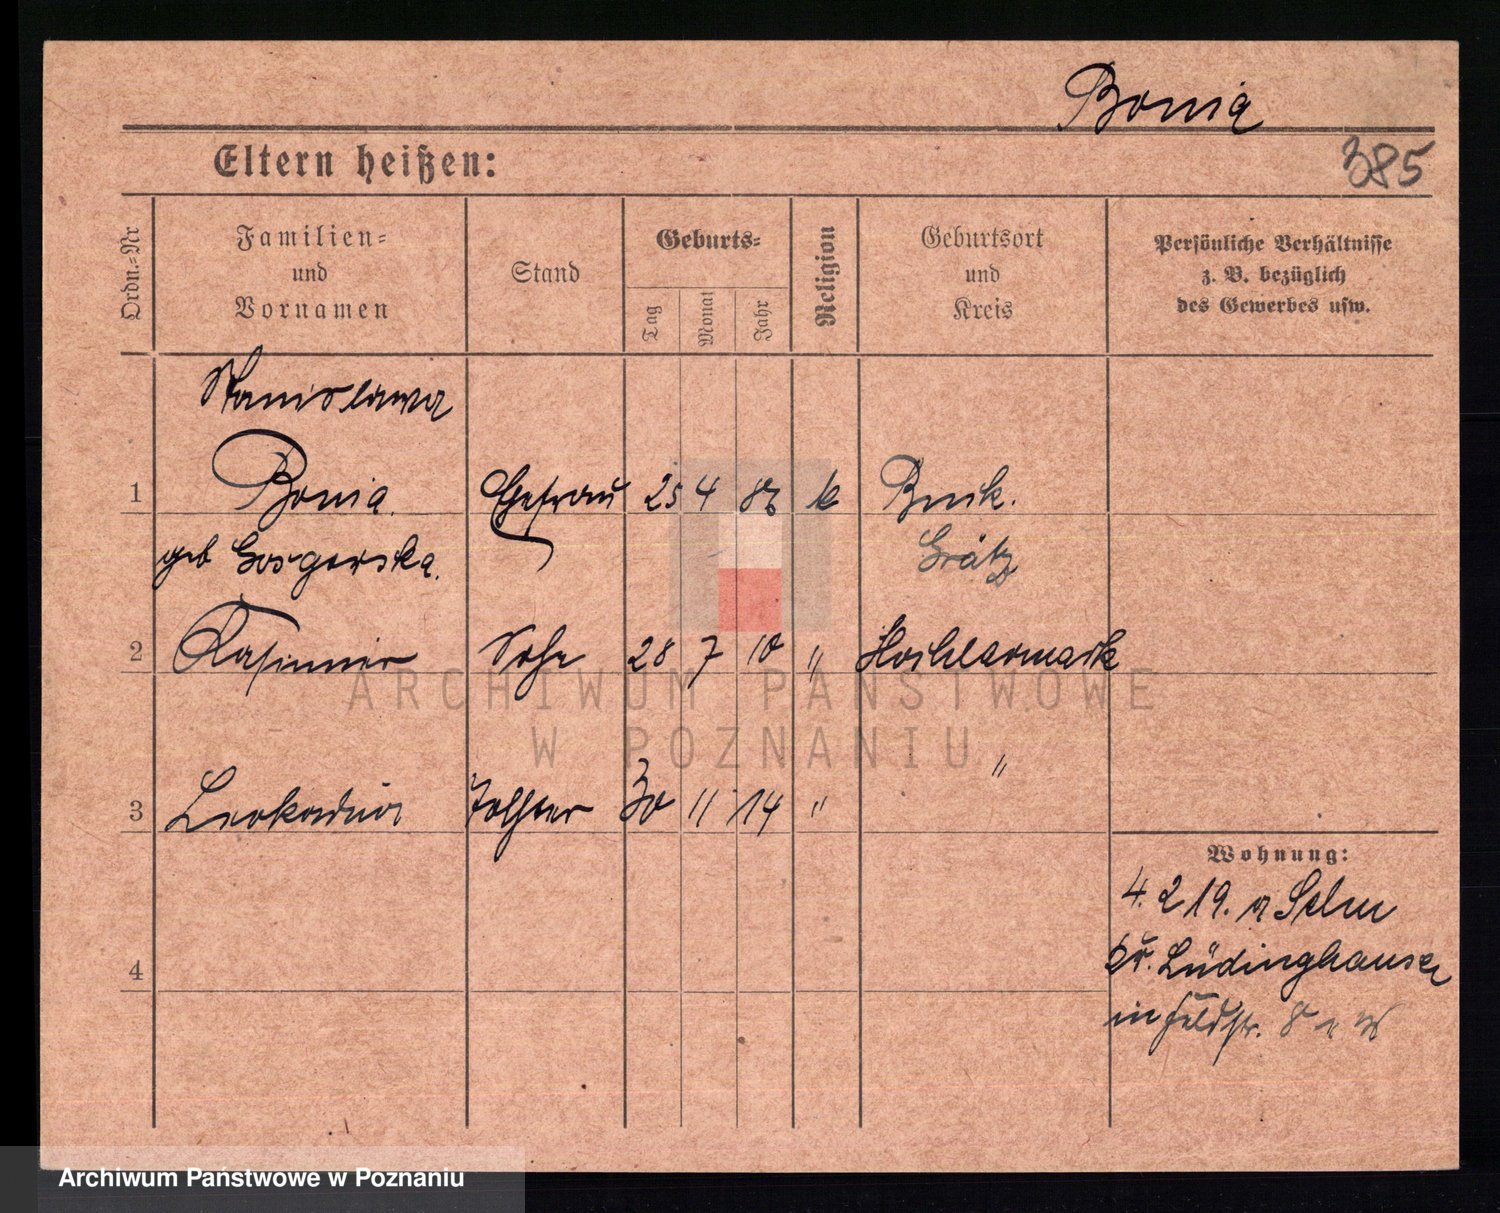 Bonia
385
Eltern heißen:
Ordn.-Nr
Familien-
und
Vornamen
Stand
Geburts-
Tag
Monat
Jahr
Religion
Geburtsort
und
Kreis
Persönliche Verhältnisse
z. B. bezüglich
des Gewerbes usw.
Stanislawa
1 Bonia. Ehefrau 25 4 86 k Buk.
geb Gosgorska. Grätz
2 Kasimier Sohn 28 7 10 " Hochlarmark
"
3 Leokadia Tochter 30 11 14 "
Wohnung:
4. 2 19. a Selm
Kr. Lüdinghausen
4
in Feldstr. 8
ARCHIWUM PAŃSTWOWE
W POZNANIU
Archiwum Państwowe w Poznaniu